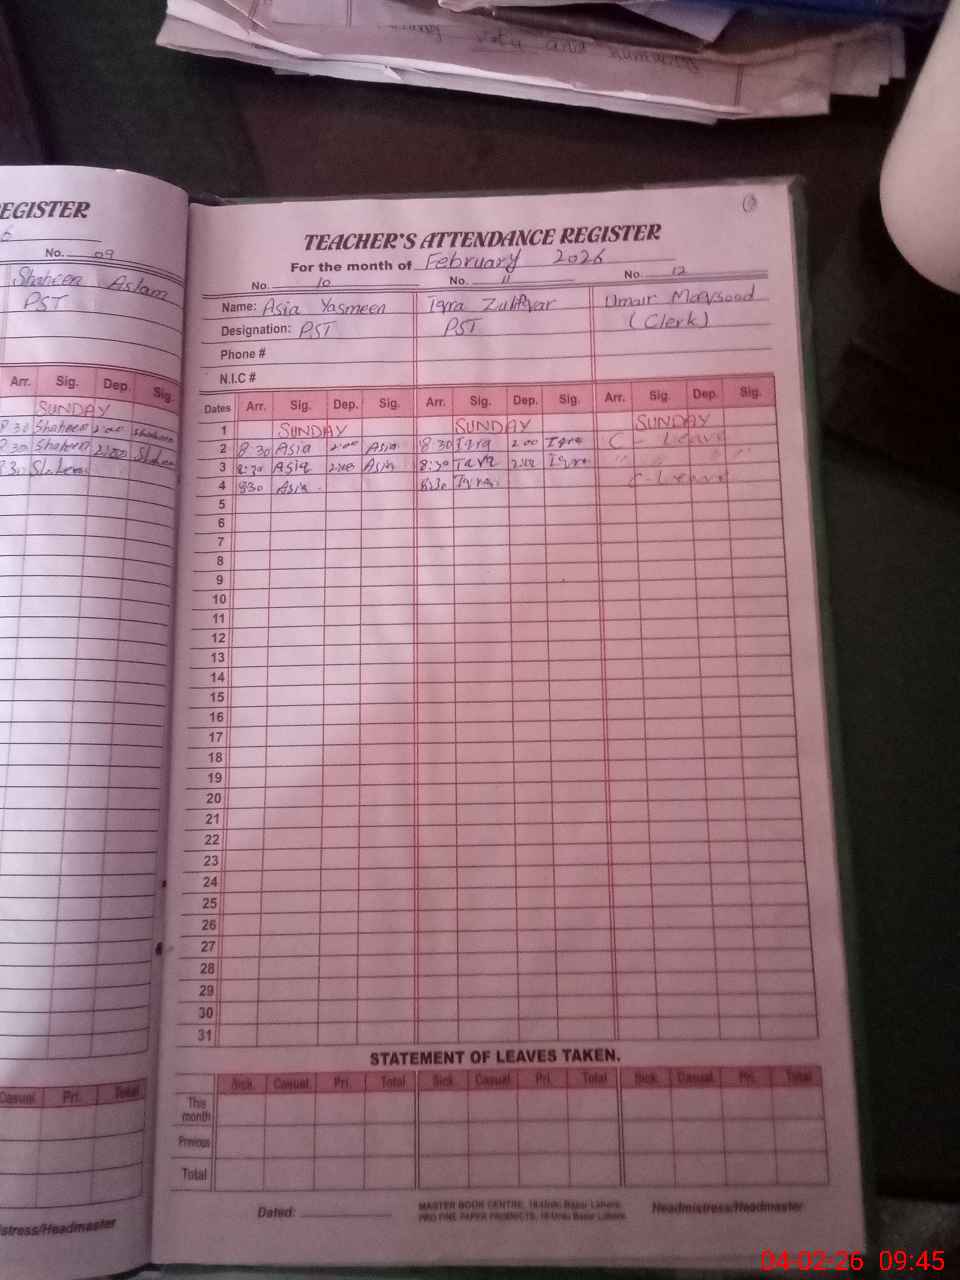 EGISTER
No. 09
Shaheen Aslam
PST
Arr. Sig. Dep. Sig.
SUNDAY
8 30 Shaheen 2:00 Shaheen
8 30 Shaheen 2:00 Shaheen
830 Shaheen
Casual Pri. Total
stress/Headmaster
and
TEACHER'S ATTENDANCE REGISTER
For the month of February 2026
No. 10 No. 11 No. 12
Name: Asia Yasmeen Iqra Zulifqar Umair
Designation: PST PST (Clerk)
Phone #
N.I.C #
Dates Arr. Sig. Dep. Sig. Arr. Sig. Dep. Sig. Arr. Sig. Dep. Sig.
1 SUNDAY SUNDAY SUNDAY
2 8 30 Asia 2:00 Asia 8 30 Iqra 2 00 Iqra C - Leave
3 8:30 Asia 2:00 Asia 8:30 Iqra 2:00 Iqra " " "
4 830 Asia 8:30 Iqra C-Leave
5
6
7
8
9
10
11
12
13
14
15
16
17
18
19
20
21
22
23
24
25
26
27
28
29
30
31
STATEMENT OF LEAVES TAKEN.
Sick. Casual. Pri. Total Sick. Casual. Pri. Total Sick. Casual. Pri. Total
This month
Previous
Total
Dated:
MASTER BOOK CENTRE, 16-Urdu Bazar Lahore.
PRO FINE PAPER PRODUCTS, 16-Urdu Bazar Lahore.
Headmistress/Headmaster
04-02-26 09:45